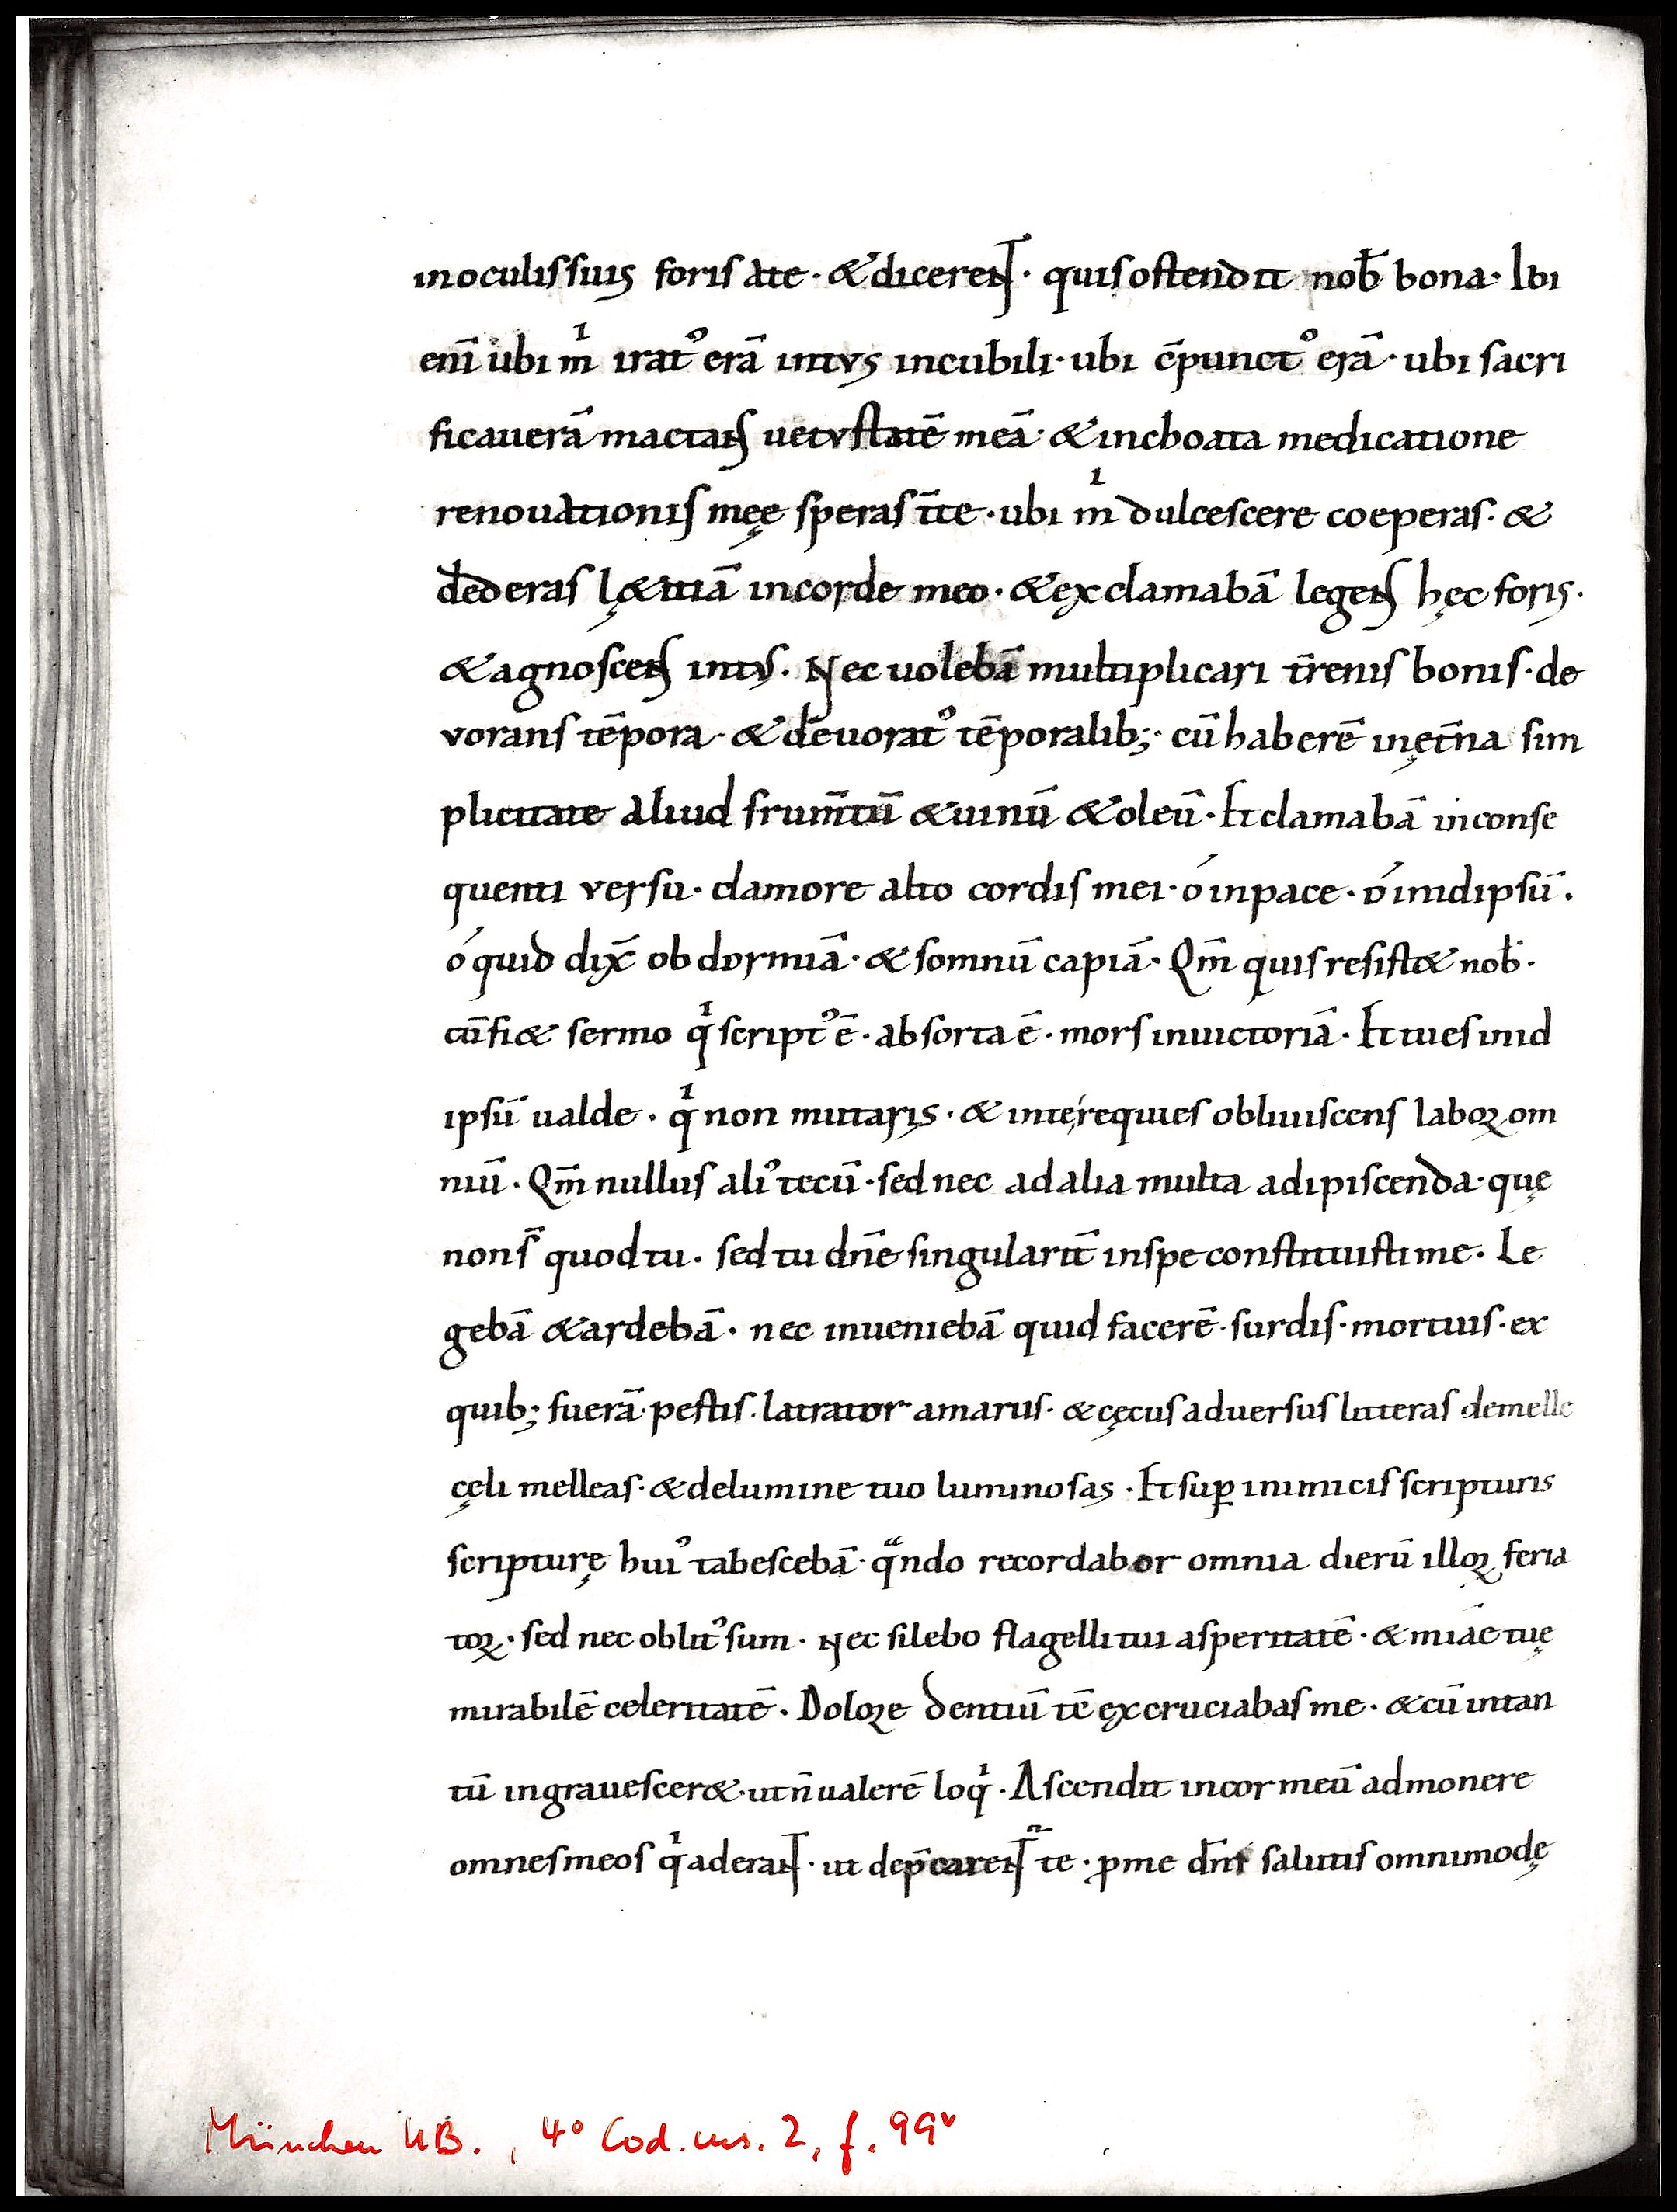 inoculissuis foris ate · &dicerent · quisostendit nob̄ bona · Ibi
enī ubi m̄ı irat᾿ erā intus incubili · ubi c̄punct᾿ erā · ubi sacri
ficauerā mactans uetustatē meā · &inchoata medicatione
renouationis meę speras īte · ubi m̄ı dulcescere coeperas · &
dederas lę&itiā incorde meo · &exclamabā legens hęc foris ·
&agnoscens intus · Nec uolebā multiplicari t̄renis bonis · de
vorans tēpora · &deuorat᾿ tēporalib; · cū haberē inęt̄na sim
plicitate aliud frum̄tū &uinū &oleū · Et clamabā inconse
quenti versu · clamore alto cordis mei · ó inpace · ó inidipsū ·
ó quid dix̄ obdormiā · &somnū capiā · Qm̄ quis resist& nob̄ ·
cū fi& sermo qͥ script᾿ ē · absorta ē · mors inuictoriā · Et tues inid
ipsū ualde · qͥ non mutaris · & interequies obliuiscens laboꝝ om
niū · Qm̄ nullus ali᾿ tecū · sed nec adalia multa adipiscenda · quę
non s̄ quod tu · sed tu dn̄e singularit̄ inspe constituisti me · Le
gebā &ardebā · nec inueniebā quid facerē · surdis · mortuis · ex
quib; fuerā · pestis · latrator amarus · &cęcus aduersus litteras demelle
cęli melleas · &delumine tuo luminosas · Et suꝑ inimicis scripturis
scripturę hui᾿ tabescebā · qᷓndo recordabor omnia dierū illoꝝ feria
toꝝ · sed nec oblit᾿ sum · Nec silebo flagelli tui asperitatē · & miāe tuę
mirabilē celeritatē · Dolore dentiū tē excruciabas me · &cū intan
tū ingrauescer& · ut n̄ ualerē loqͥ · Ascendit incor meū admonere
omnes meos qͥ aderant · ut dep̄carent te · ꝓme dm̄ salutis omnimodę
München UB., 4° Cod. ms. 2, f. 99ᵛ